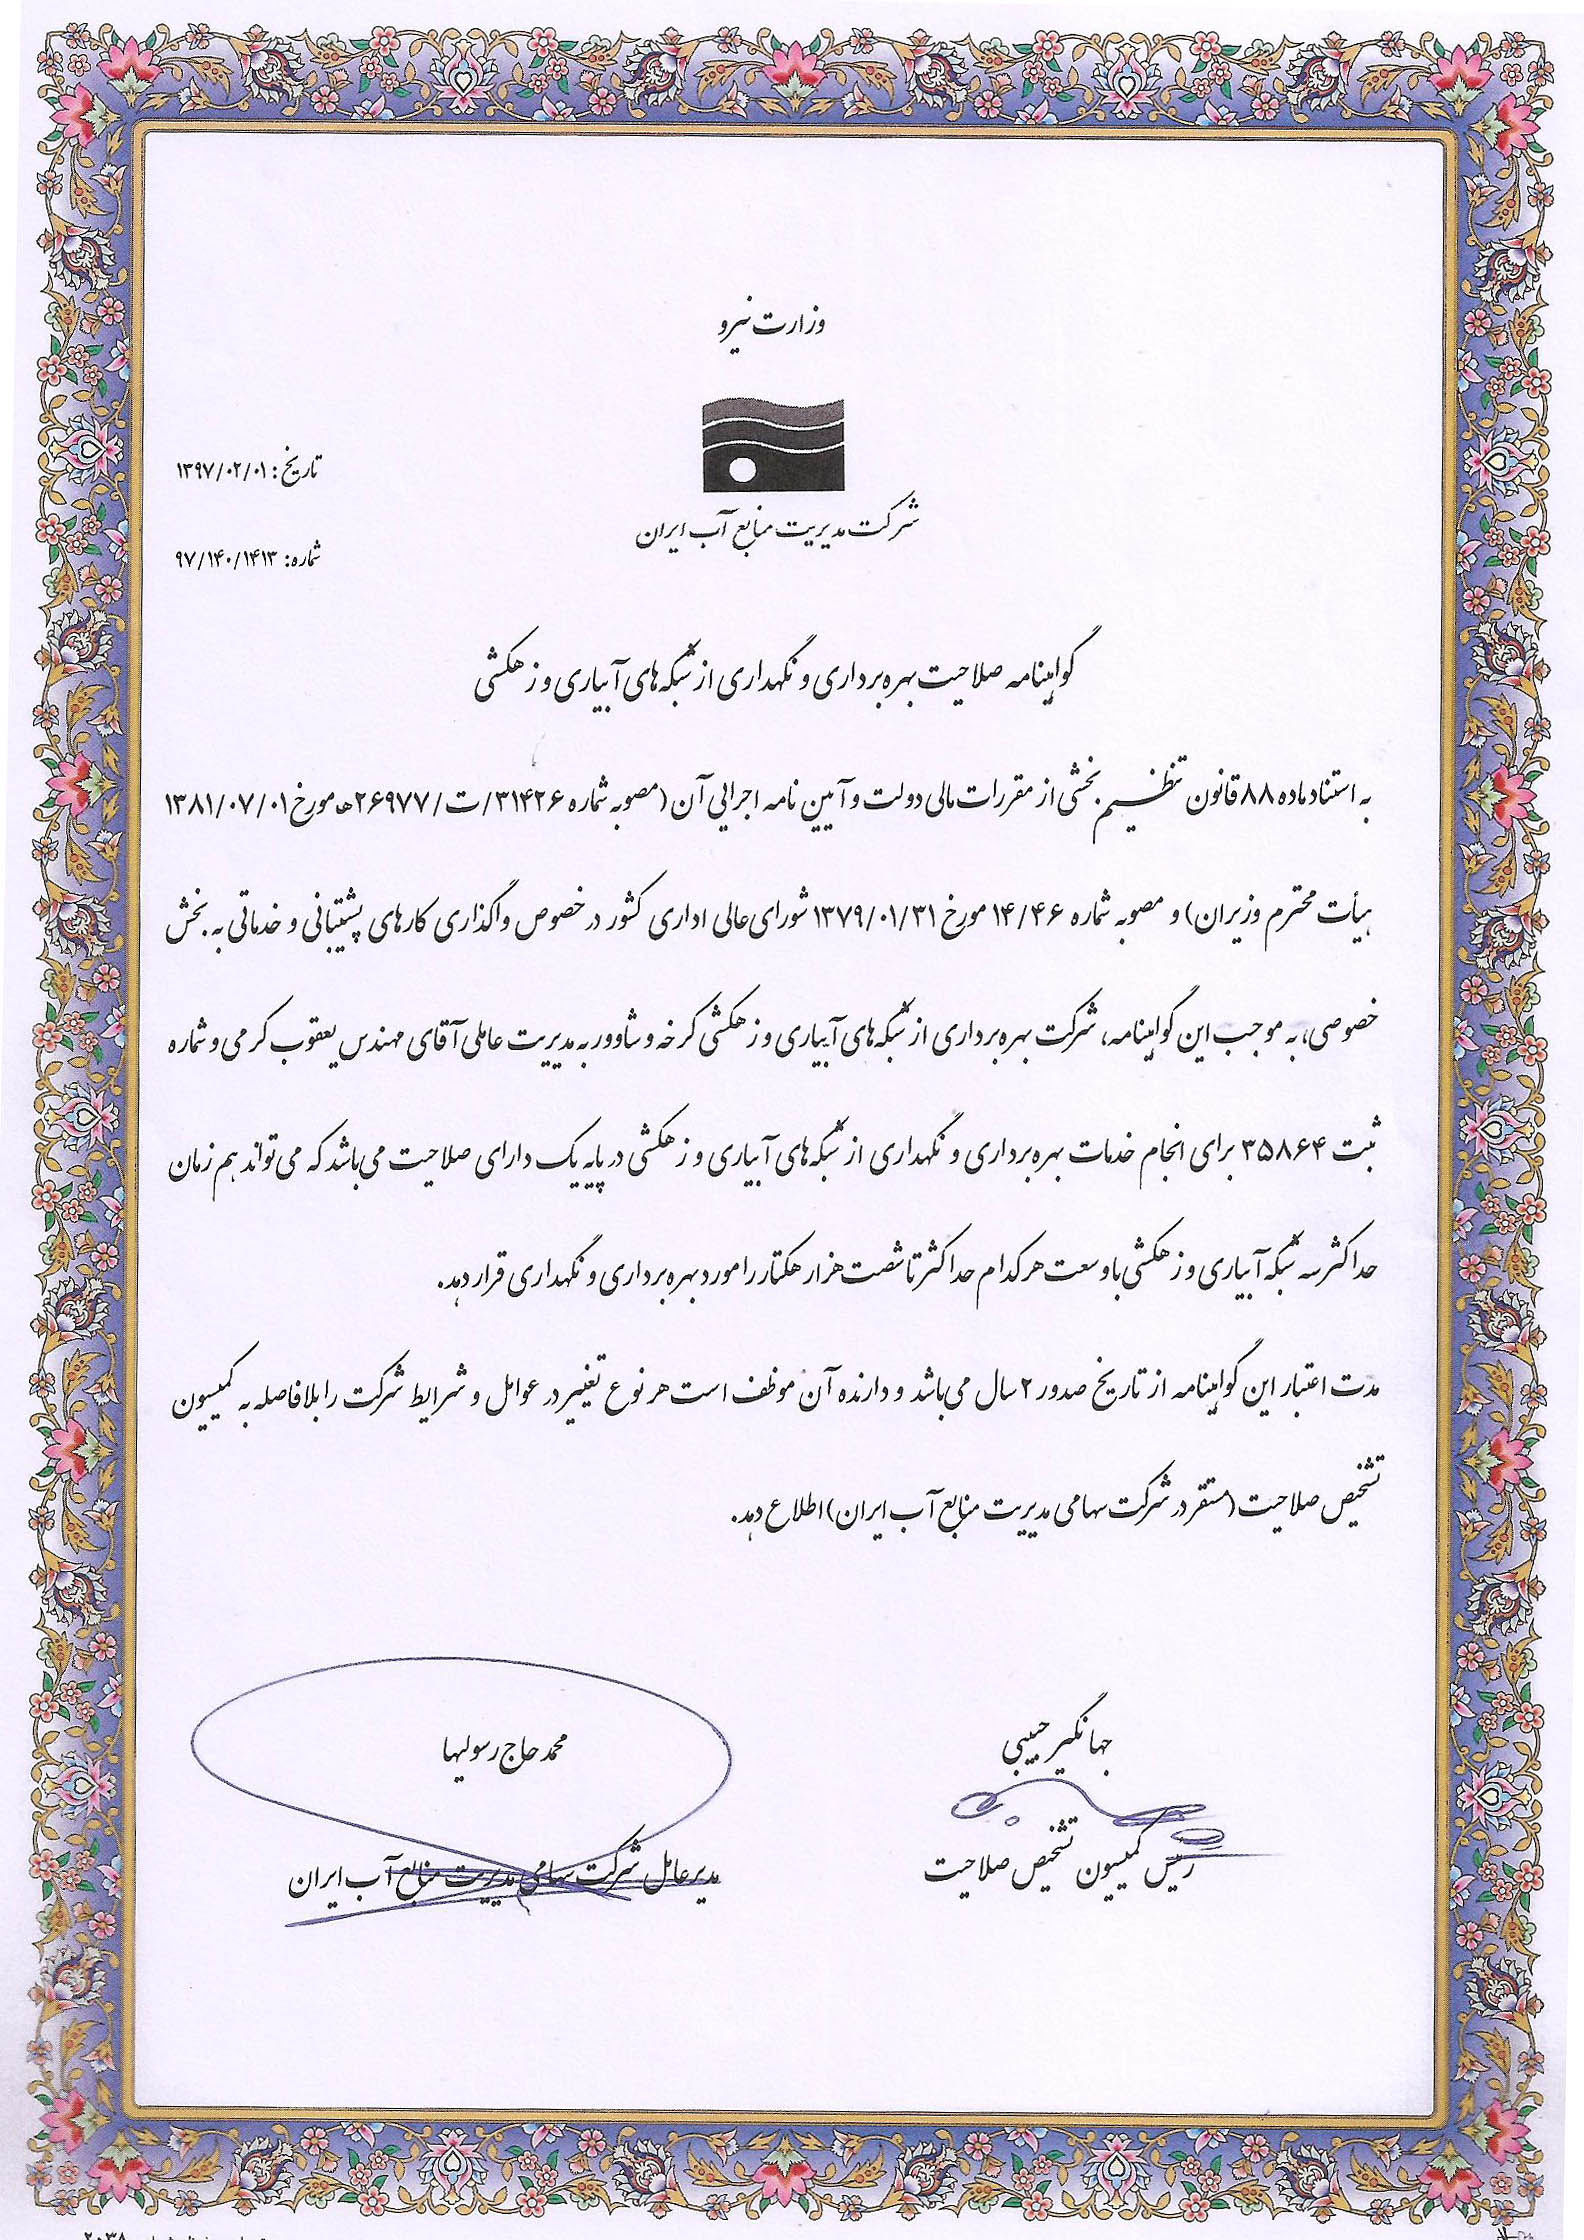 وزارت نیرو
شرکت مدیریت منابع آب ایران
تاریخ: ۱۳۹۷/۰۲/۰۱
شماره: ۹۷/۱۴۰/۱۴۱۳
گواهینامه صلاحیت بهره برداری و نگهداری از شبکه های آبیاری و زهکشی
به استناد ماده ۸۸ قانون تنظیم بخشی از مقررات مالی دولت و آیین نامه اجرایی آن (مصوبه شماره ۳۱۴۲۶/ت/۲۶۹۷۷ه مورخ ۱۳۸۱/۰۷/۰۱
هیأت محترم وزیران) و مصوبه شماره ۱۴/۴۶ مورخ ۱۳۷۹/۰۱/۳۱ شورای عالی اداری کشور در خصوص واگذاری کارهای پشتیبانی و خدماتی به بخش
خصوصی، به موجب این گواهینامه، شرکت بهره برداری از شبکه های آبیاری و زهکشی کرخه و شاوور به مدیریت عاملی آقای مهندس یعقوب کرمی و شماره
ثبت ۳۵۸۶۴ برای انجام خدمات بهره برداری و نگهداری از شبکه های آبیاری و زهکشی در پایه یک دارای صلاحیت می باشد که می تواند هم زمان
حداکثر سه شبکه آبیاری و زهکشی با وسعت هر کدام حداکثر تا شصت هزار هکتار را مورد بهره برداری و نگهداری قرار دهد.
مدت اعتبار این گواهینامه از تاریخ صدور ۲ سال می باشد و دارنده آن موظف است هر نوع تغییر در عوامل و شرایط شرکت را بلافاصله به کمیسیون
تشخیص صلاحیت (مستقر در شرکت سهامی مدیریت منابع آب ایران) اطلاع دهد.
جهانگیر حبیبی
رئیس کمیسیون تشخیص صلاحیت
محمد حاج رسولیها
مدیر عامل شرکت سهامی مدیریت منابع آب ایران